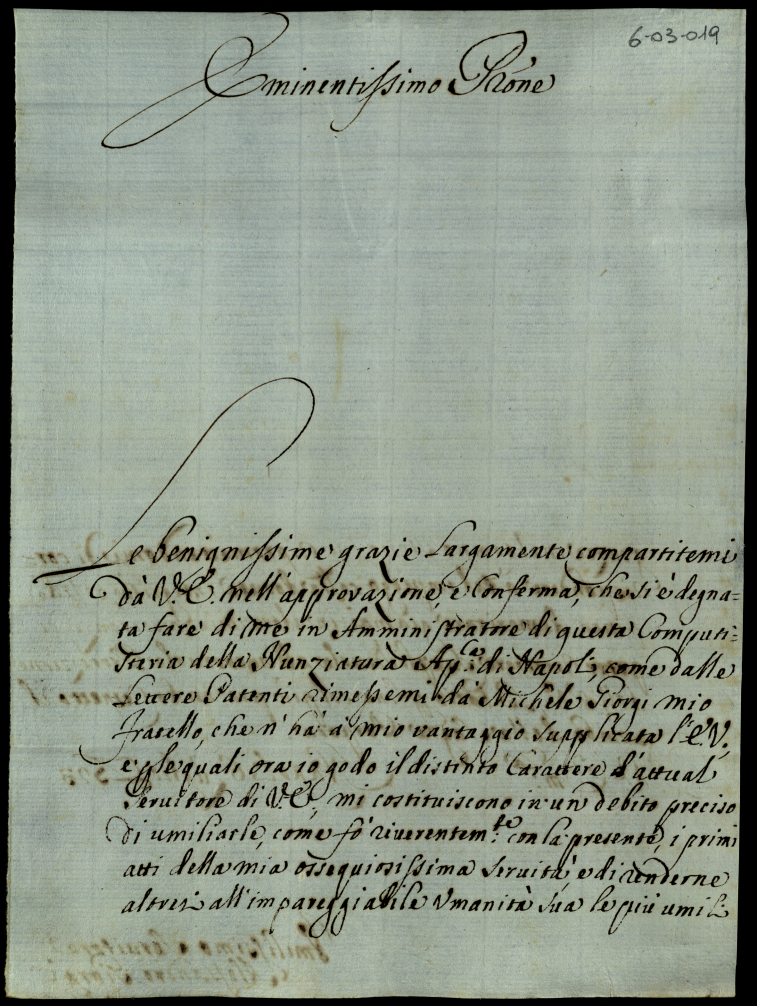 6-03-019
Eminentissimo Prōne
Le benignissime grazie Largamente compartitemi
dà V. E. nell'approvazione, e Conferma, che si è degna=
ta fare di me in Amministratore di questa Computi=
steria della Nunziatura Ap.lca di Napoli, come dalle
Lettere Patenti rimessemi da Michele Giorgi mio
fratello, che n' hà à mio vantaggio supplicata l'E. V.,
e le quali ora io godo il distinto Carattere d'attual
Servitore di V. E., mi costituiscono in un debito preciso
di umiliarle, come fò riverentem.te con la presente, i primi
atti della mia ossequiosissima servitù e di renderne
altresì all'impareggiabile Umanità sua le più umili